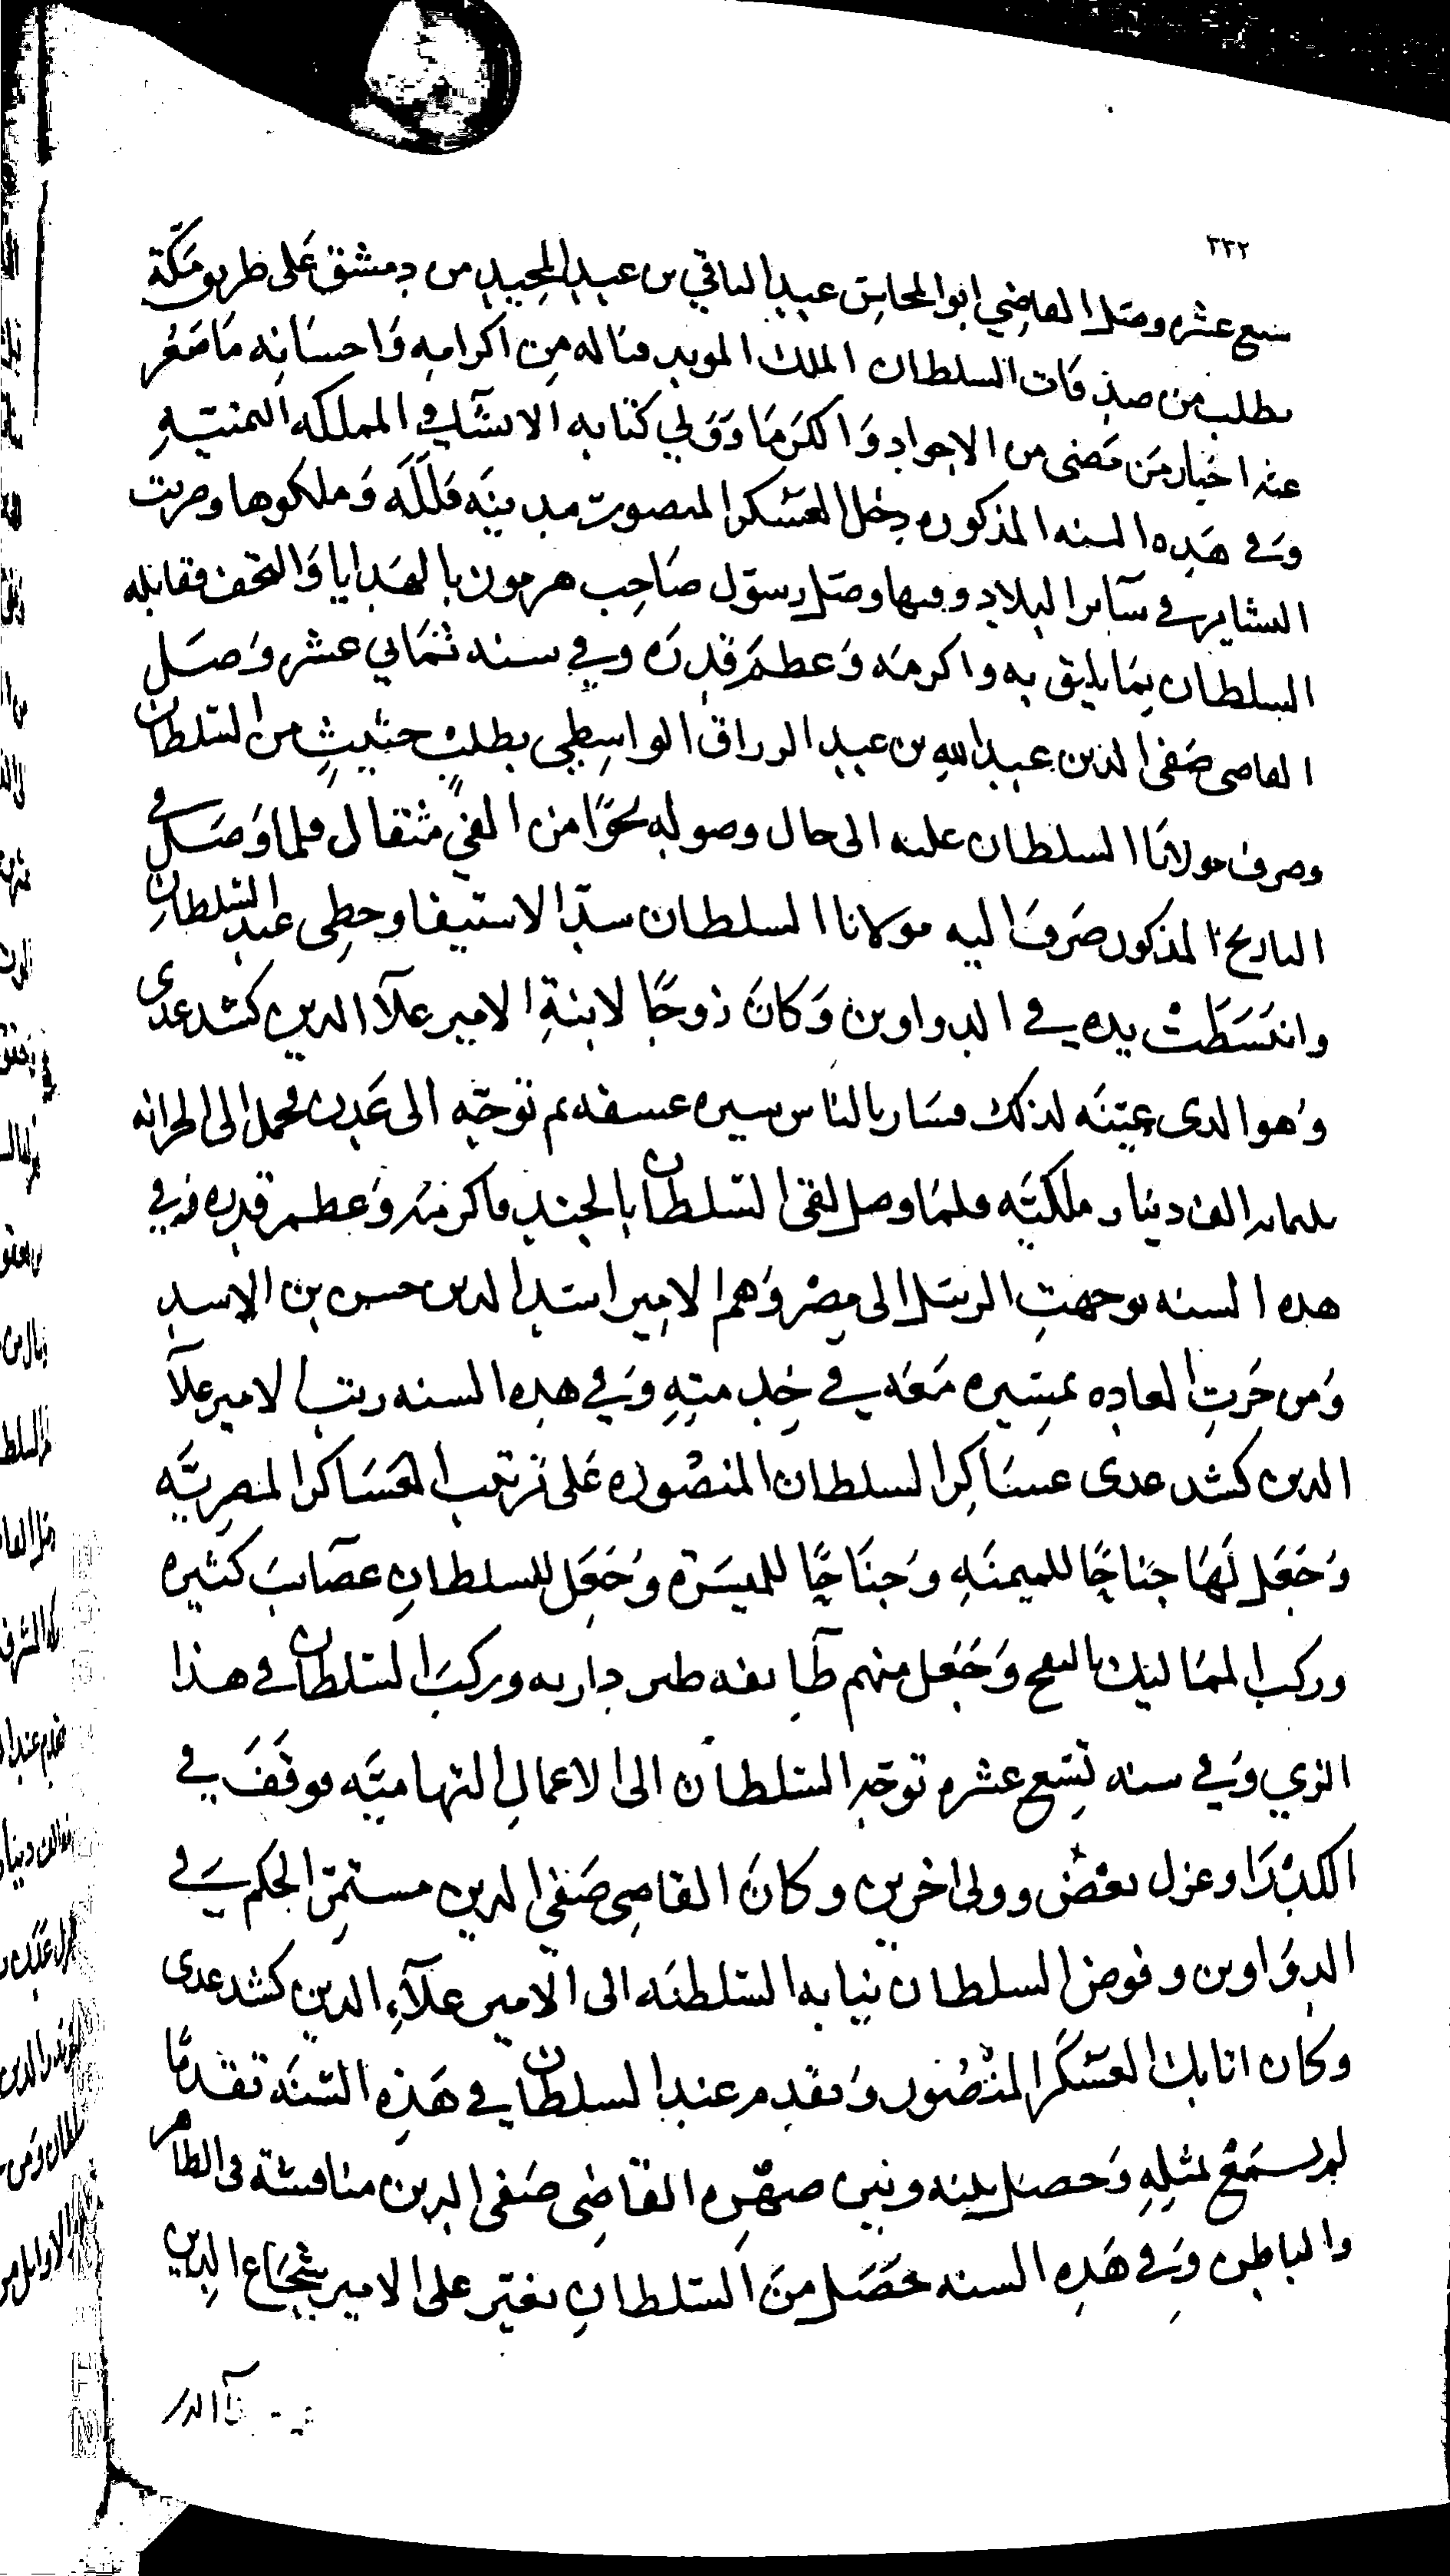 ٣٣٢
سبع عشره وصل القاضي ابو المحاسن عبد الباقي بن عبد المجيد من دمشق على طريق مكّة
يطلب من صدقات السلطان الملك المويد فناله من اكرامه واحسانه ما صغر
عنه اخبار من مضى من الاجواد والكرما وولي كتابه الانشآ في المملكه اليمنيّه
وفي هذه السنه المذكوره دخل العسكر المنصور مدينه فللّه وملكوها وضربت
البشاير في سآير البلاد وفيها وصل رسول صاحب هرمون بالهدايا والتحف فقابله
السلطان بما يليق به واكرمه وعظم قدره وفي سنه ثماني عشره وصل
القاضي صفي الدين عبد الله بن عبد الرزاق الواسطي بطلب حثيث من السلطان
وصرف مولانا السلطان عليه الى حال وصوله نحوًا من الفي مثقال فلما وصل في
التاريخ المذكور صرف اليه مولانا السلطان سدّ الاستيفا وحظي عند السلطان
وانبسطت يده في الدواوين وكان زوجًا لابنة الامير علآ الدين كشدغدى
وهو الذى عيّنه لذلك فسار بالناس سيره عسفه ثم توجّه الى عدن فحمل الى الخزانه
ثلثمايه الف دينار ملكيّه فلما وصل لقي السلطان بالجند فاكرمه وعظم قدره وفي
هذه السنه توجهت الرسل الى مصر وهم الامير اسد الدين حسن بن الاسد
ومن جرت العاده بمسيره معه في خدمته وفي هذه السنه رتب الامير علآ
الدين كشدغدى عساكر السلطان المنصوره على ترتيب العساكر المصريّه
وجعل لها جناحًا للميمنه وجناحًا للميسرة وجعل للسلطان عصآيب كثيره
وركب المماليك بالبقج وجعل منهم طآيفه طبر داريه وركب السلطان في هذا
الزي وفي سنه تسع عشره توجّه السلطان الى الاعمال التهاميّه فوقف في
الكدرا وعزل بعض وولى اخرين وكان القاضي صفي الدين مستمرّ الحكم في
الدواوين وفوض السلطان نيابه السلطنه الى الامير علآء الدين كشدغدى
وكان اتابك العسكر المنصور وتقدم عند السلطان في هذه السنه تقدمًا
لم يسمع بمثله وحصل بينه وبين صهره القاضي صفي الدين منافسة في الظاهر
والباطن وفي هذه السنه حصل من السلطان تغير على الامير شجاع الدين